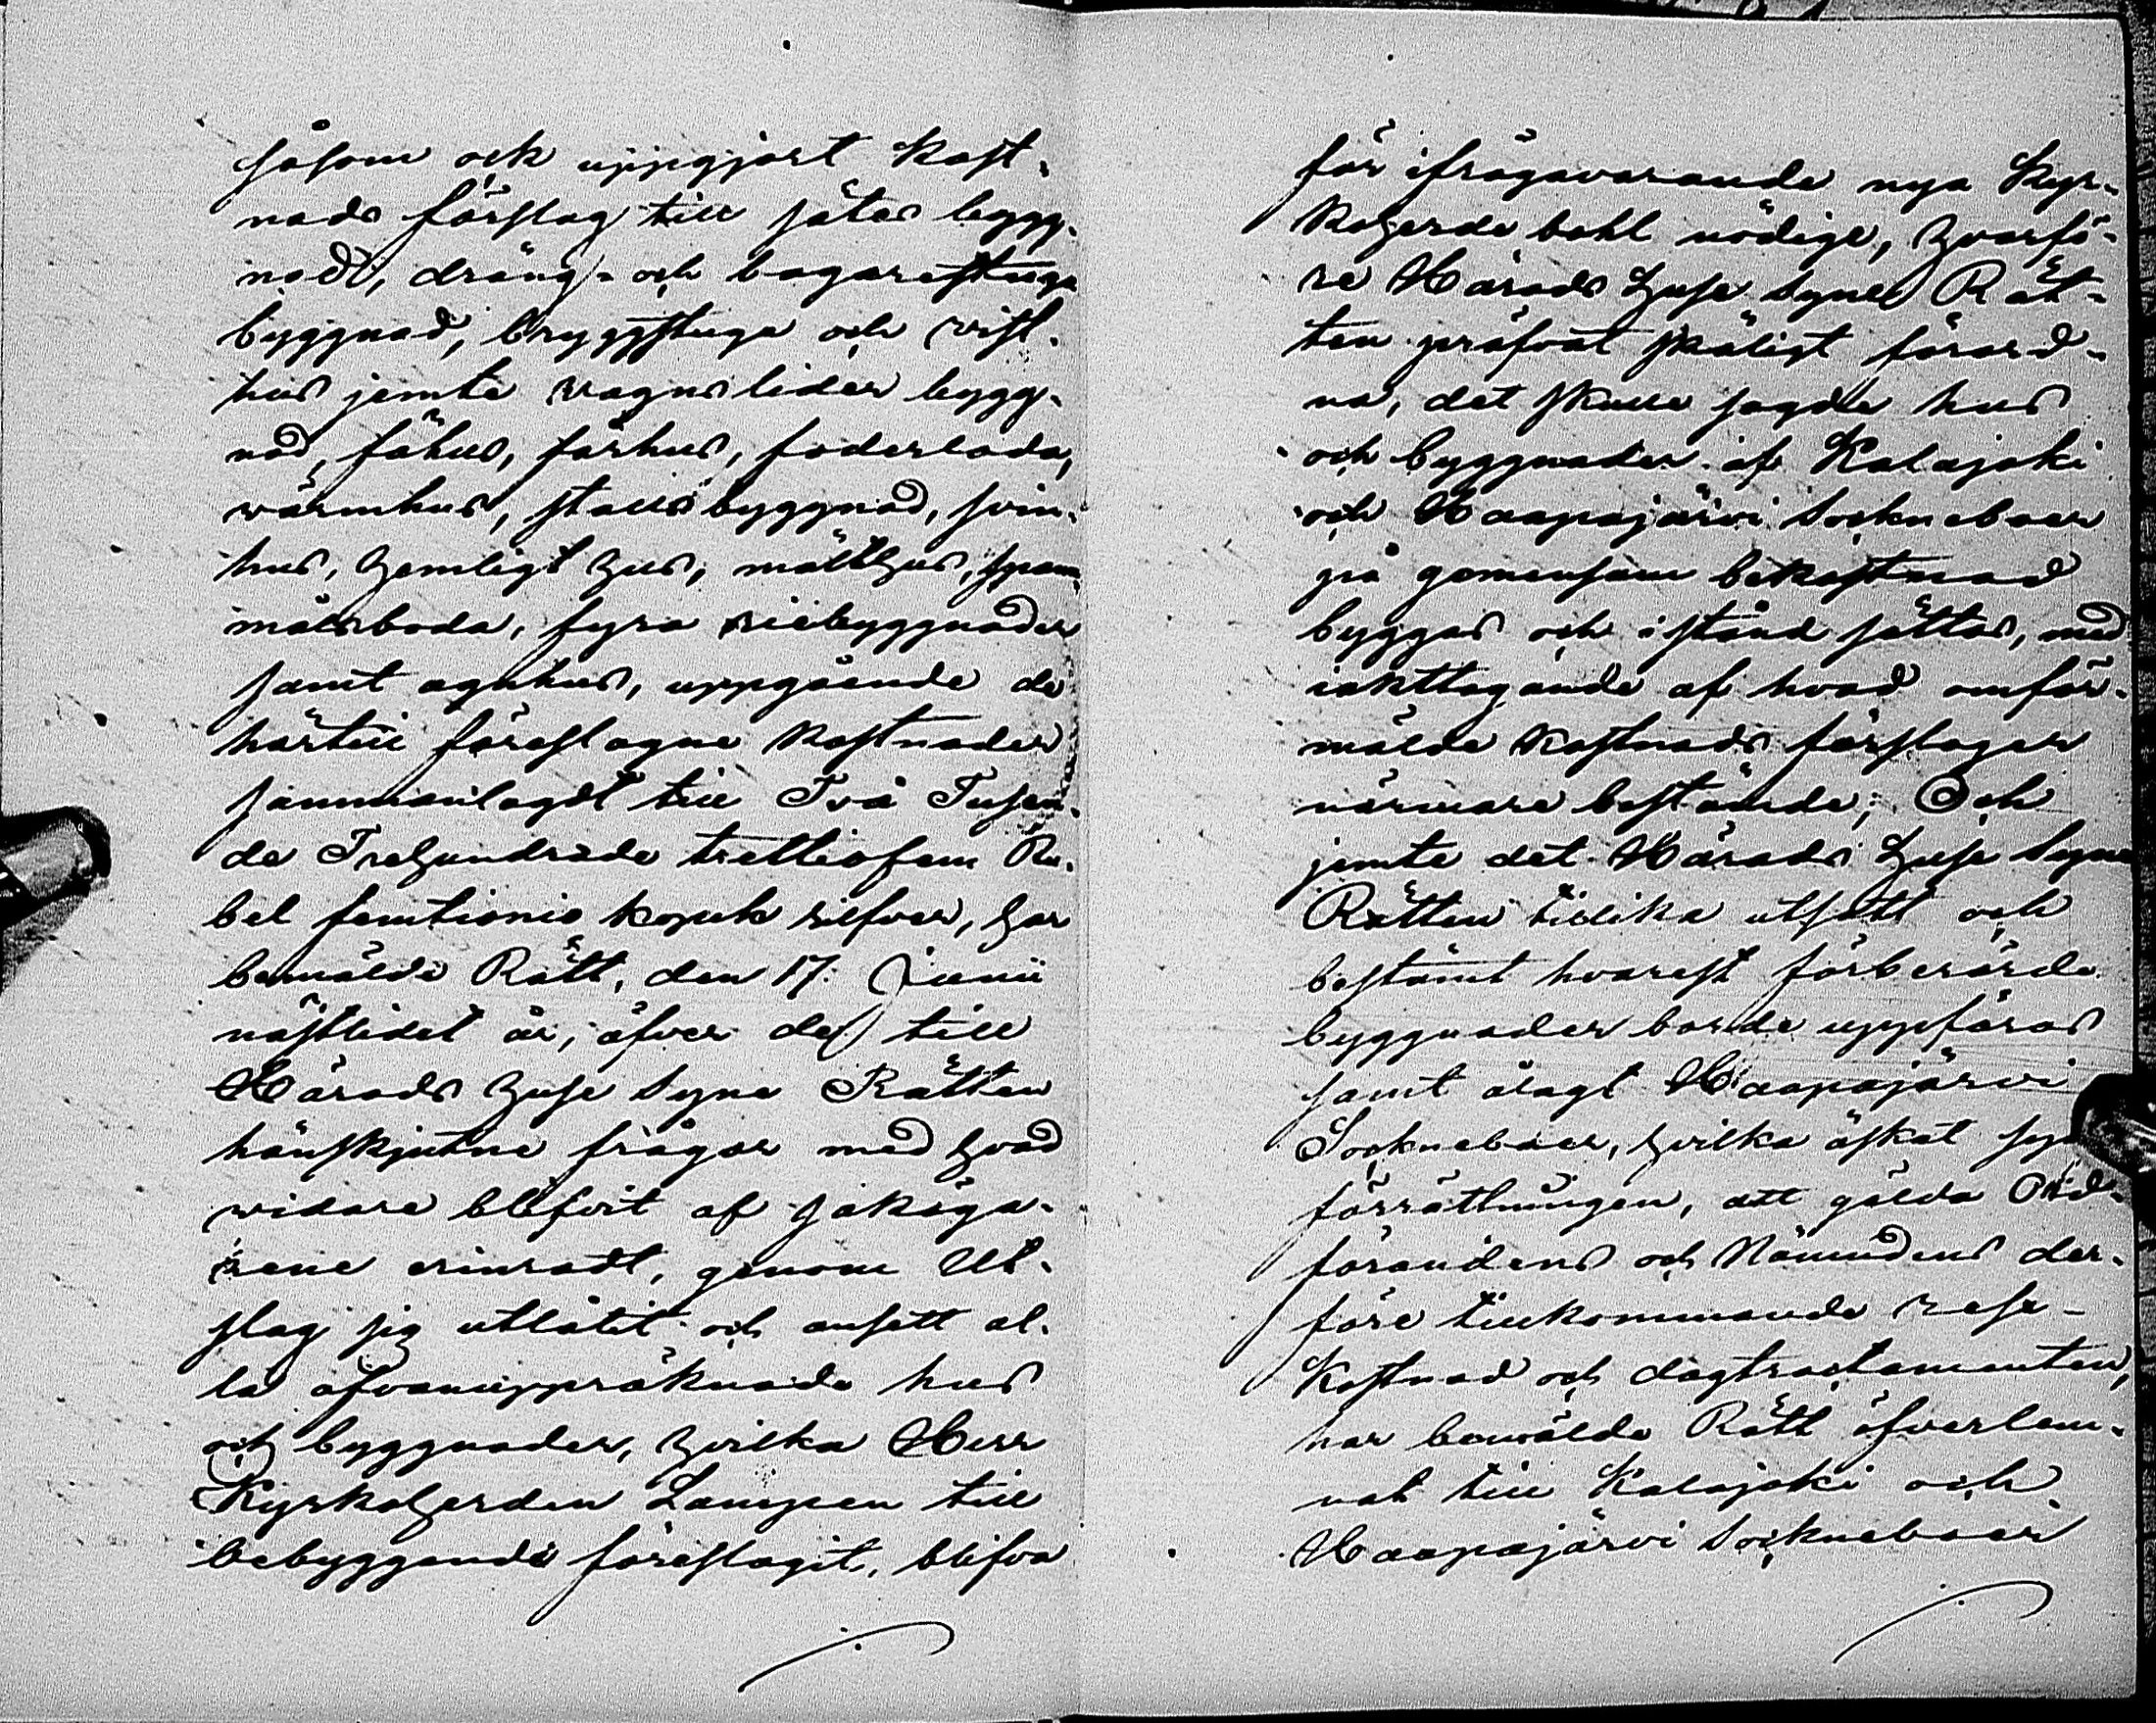 såsom ock uppgjort kost-
nads förslag till sätes bygg-
nadt, dräng- och bagarestuge
byggnad, bryggstuga och vist-
hus jemte vagnslider bygg-
nad, fähus, fårhus, foderlada,
värmhus, stallsbyggnad, svin-
hus, hemligt hus, mälthus, span-
målsboda, fyra riebyggnader
samt agnhus, uppgående de
härtill föreslagne kostnader
sammanlagdt till Två Tusen-
de Trehundrade trettiofem Ru-
bel femtionio kopek silfver, har
bemälde Rätt, den 17. Junii
nästlidet år, öfver de till
Härads Husesyne Rätten
hänskjutne frågor med hvad
vidare blifvit af sakäga-
rene erinradt, genom Ut-
slag sig utlåtit och ansett al-
la ofvanuppräknade hus
och byggnader, hvilka Herr
Kyrkoherden Lampen till
bebyggande föreslagit, blifva
för ifrågavarande nya Kyr-
koherde bohl nödige, hvarfö-
re Härads Husesyne Rät-
ten pröfvat skäligt förord-
na, det skulle sagde hus
och byggnader af Kalajoki
och Haapajärvi Sockneboer
på gemensam bekostnad
byggas och i stånd sättas, med
iakttagande af hvad omför-
mälde kostnads förslager
närmare bestämde; Och
jemte det Härads Huse Syne
Rätten tillika utsatt och
bestämt hvarest förberörde
byggnader borde uppföras
samt ålagt Haapajärvi
Sockneboer, hvilka äskat sy
förrättningen, att gälda Ord-
förandens och Nämndens der-
före tillkommande rese-
kostnad och dagtractamenten,
har bemälde Rätt öfverlem-
nat till Kalajoki och
Haapajärvi Socknebo­er